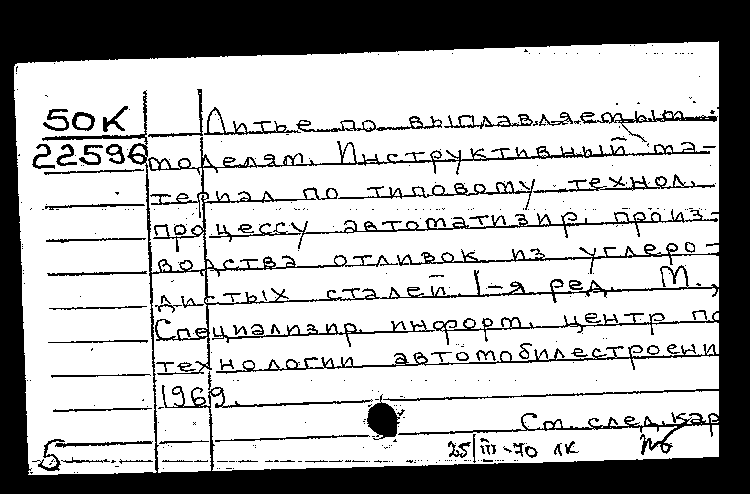 50К Литье по выплавляемым
22596 моделям. Инструктивный ма-
териал по типовому технол.
процессу автоматизир. произ-
водства отливок из углеро-
дистых сталей 1-я ред. М.,
Специализир. информ. центр по
технологии автомобилестроени
1969.
См. след. кар
5 25/III-70 ЛК